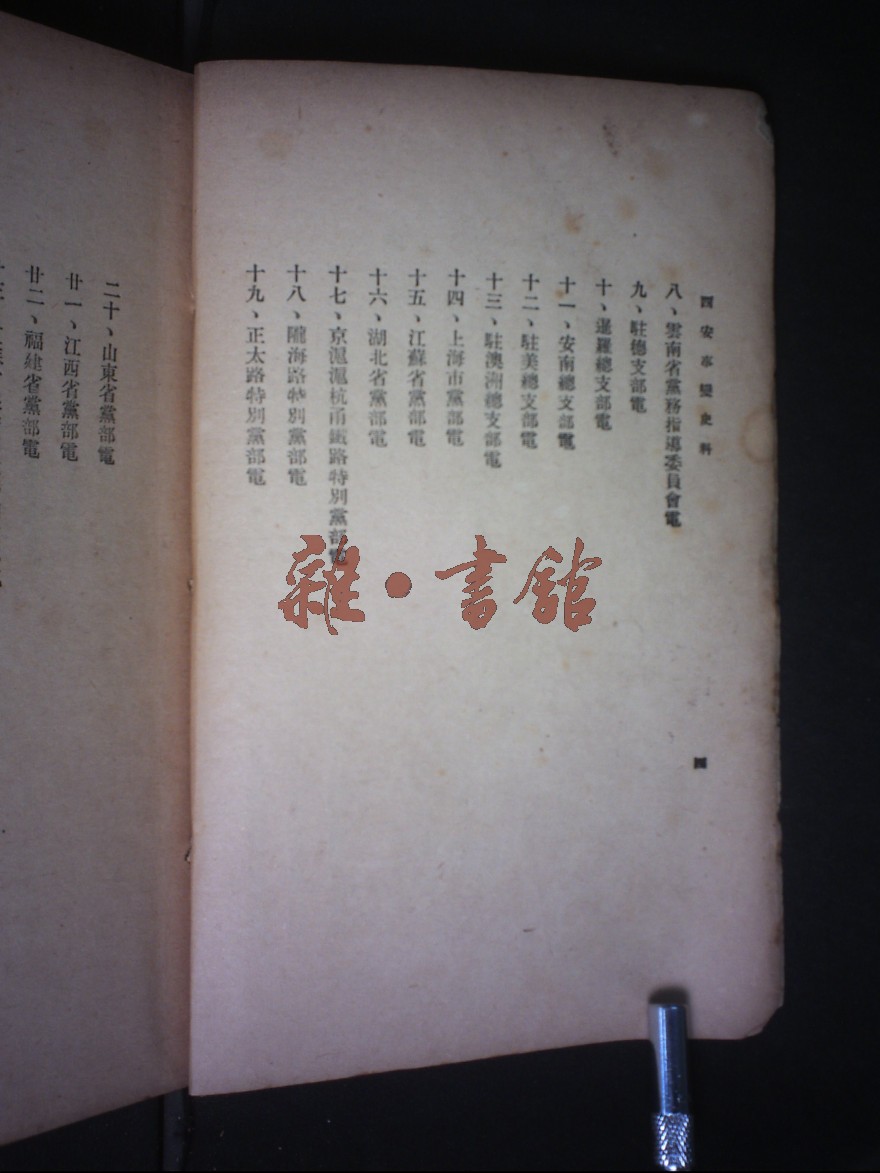 西安事變史料
八、雲南省黨務指導委員會電
九、駐德支部電
十、暹羅總支部電
十一、安南總支部電
十二、駐美總支部電
十三、駐澳洲總支部電
十四、上海市黨部電
十五、江蘇省黨部電
十六、湖北省黨部電
十七、京滬滬杭甬鐵路特別黨部電
十八、隴海路特別黨部電
十九、正太路特別黨部電
四
二十、山東省黨部電
廿一、江西省黨部電
廿二、福建省黨部電
雜·書館